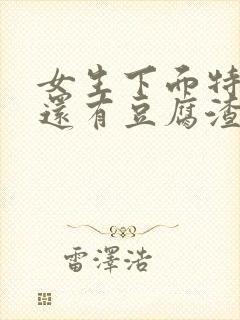 女生下面特
還有豆腐渣
雷澤浩